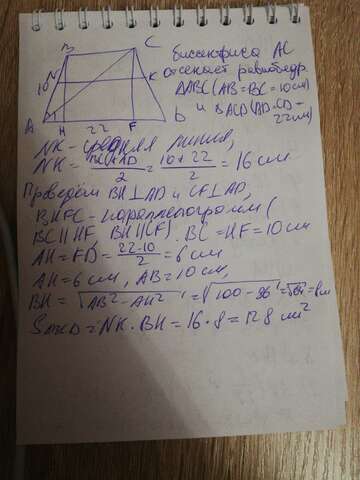 B C
биссектриса AC
10 N K отсекает равнобедр.
ΔABC (AB=BC=10см)
A H 22 F D и ΔACD (AD=CD=
22см)
NK - средняя линия,
NK = (BC+AD)/2 = (10+22)/2 = 16 см
Проведем BH⊥AD и CF⊥AD,
BHFC - параллелограмм (
BC||HF, BH||CF). BC=HF=10см
AH=FD= (22-10)/2 = 6см
AH=6см, AB=10см,
BH = √(AB²-AH²) = √(100-36) = √64 = 8см
SABCD = NK·BH = 16·8 = 128 см²